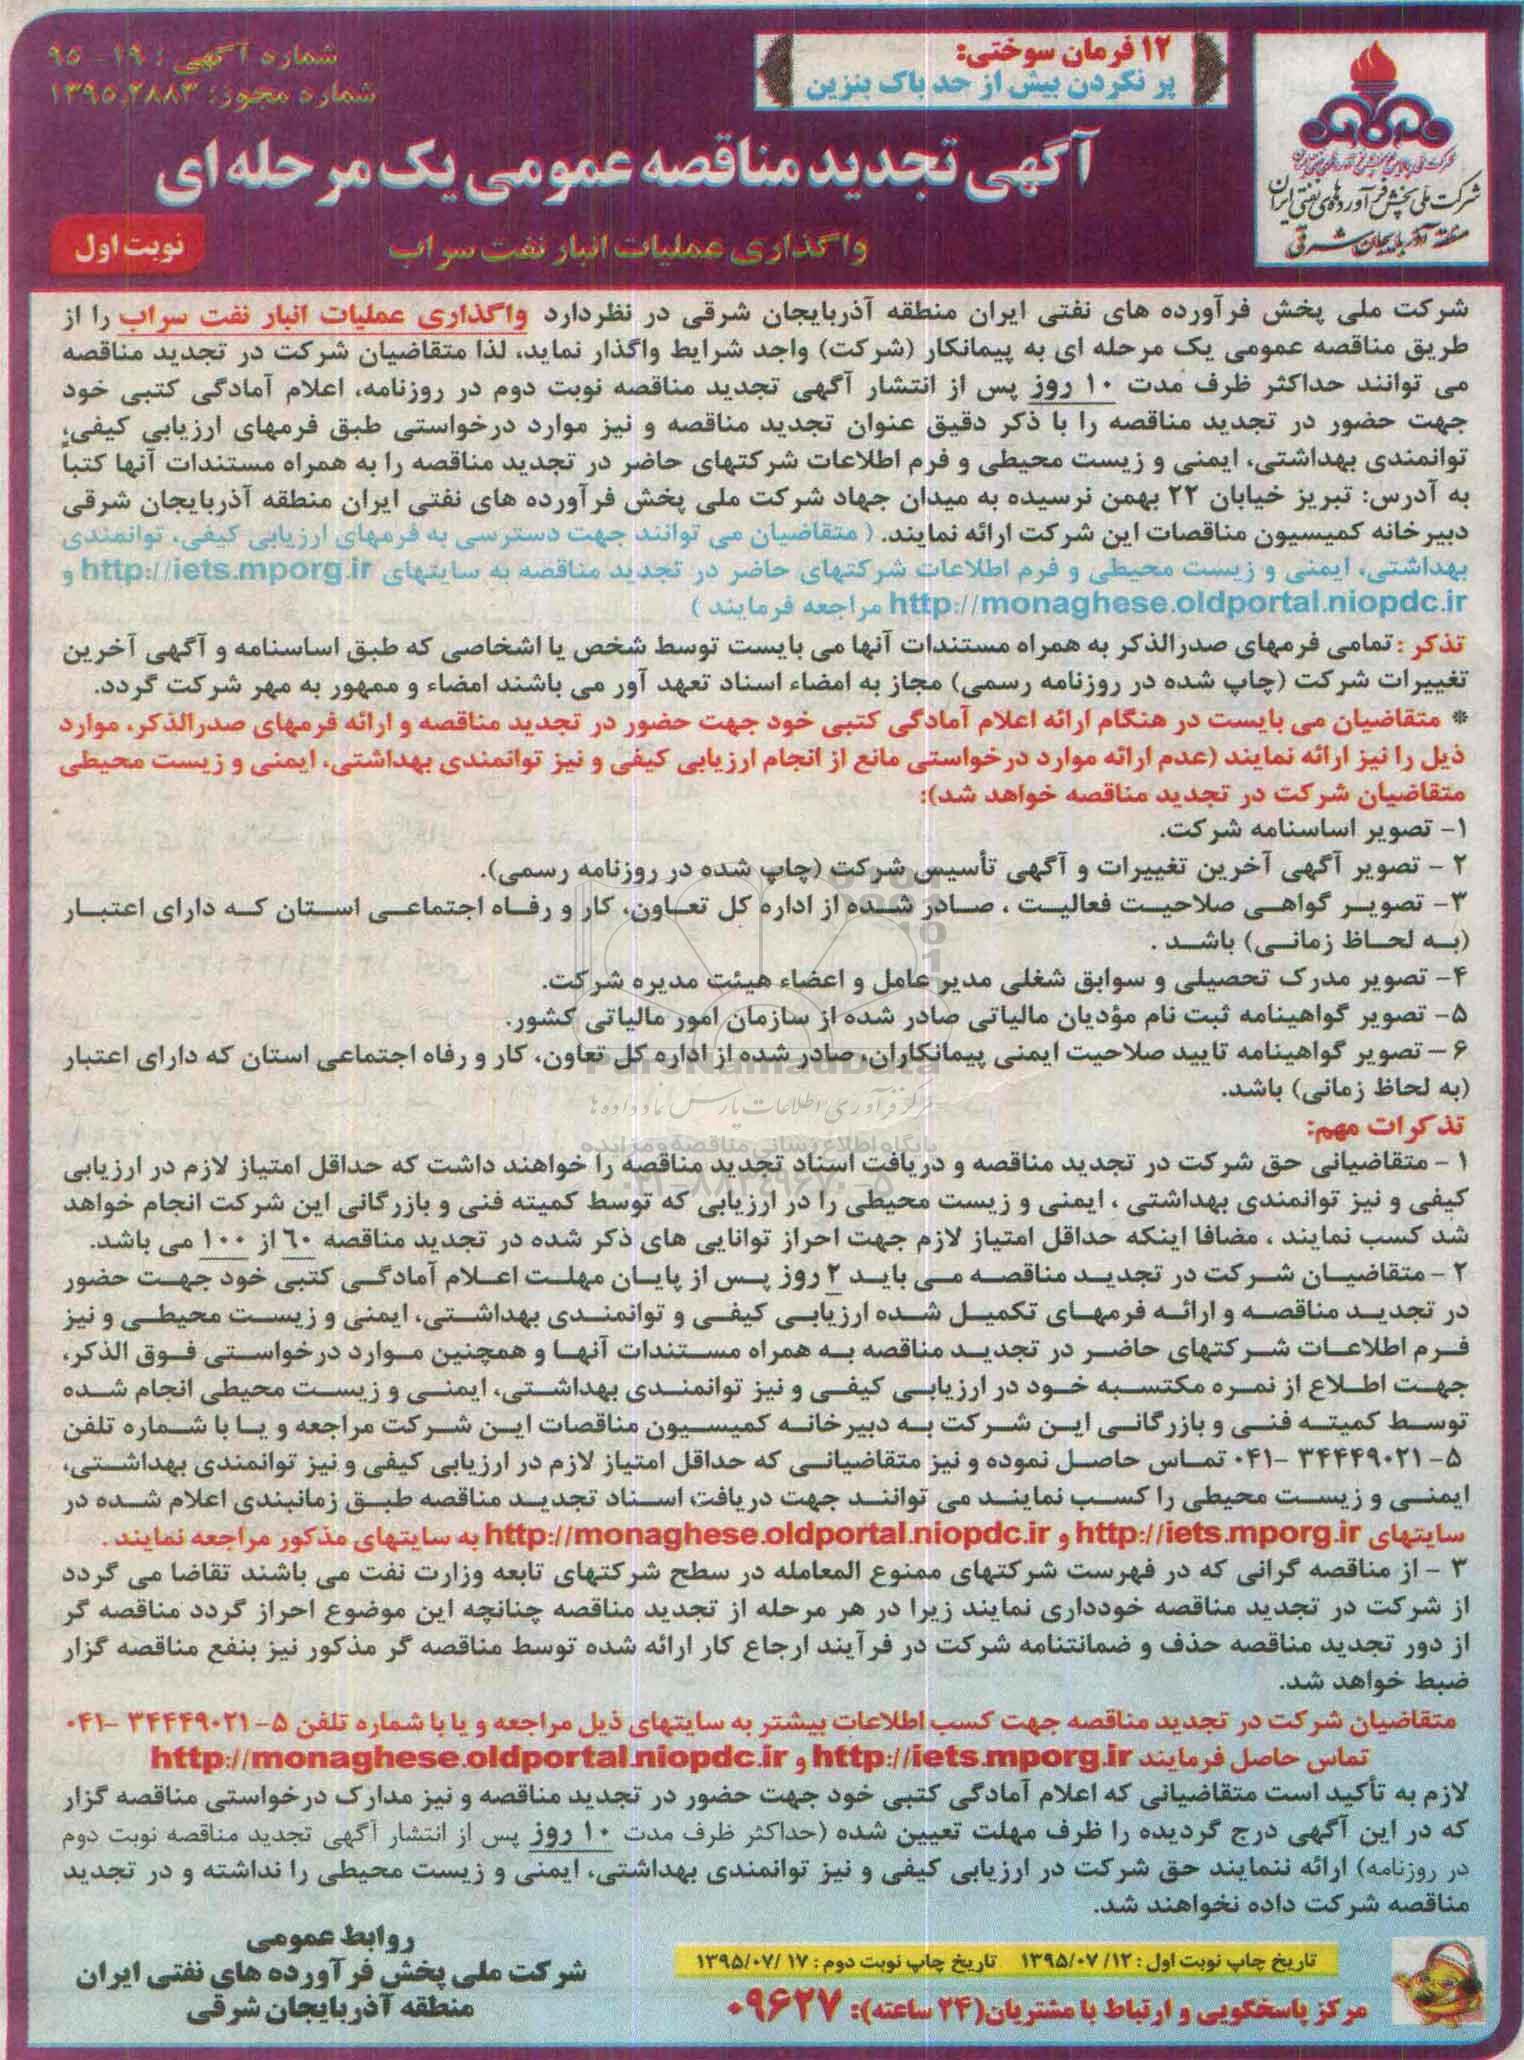 ۱۲ فرمان سوختی:
پر نکردن بیش از حد باک بنزین
شماره آگهی : ۱۹- ۹۵
شماره مجوز: ۱۳۹۵.۲۸۸۳
شرکت ملی پخش فرآورده‌های نفتی ایران
منطقه آذربایجان شرقی
آگهی تجدید مناقصه عمومی یک مرحله ای
واگذاری عملیات انبار نفت سراب
نوبت اول
شرکت ملی پخش فرآورده های نفتی ایران منطقه آذربایجان شرقی در نظردارد واگذاری عملیات انبار نفت سراب را از
طریق مناقصه عمومی یک مرحله ای به پیمانکار (شرکت) واجد شرایط واگذار نماید، لذا متقاضیان شرکت در تجدید مناقصه
می توانند حداکثر ظرف مدت ۱۰ روز پس از انتشار آگهی تجدید مناقصه نوبت دوم در روزنامه، اعلام آمادگی کتبی خود
جهت حضور در تجدید مناقصه را با ذکر دقیق عنوان تجدید مناقصه و نیز موارد درخواستی طبق فرمهای ارزیابی کیفی،
توانمندی بهداشتی، ایمنی و زیست محیطی و فرم اطلاعات شرکتهای حاضر در تجدید مناقصه را به همراه مستندات آنها کتباً
به آدرس: تبریز خیابان ۲۲ بهمن نرسیده به میدان جهاد شرکت ملی پخش فرآورده های نفتی ایران منطقه آذربایجان شرقی
دبیرخانه کمیسیون مناقصات این شرکت ارائه نمایند. ( متقاضیان می توانند جهت دسترسی به فرمهای ارزیابی کیفی، توانمندی
بهداشتی، ایمنی و زیست محیطی و فرم اطلاعات شرکتهای حاضر در تجدید مناقصه به سایتهای http://iets.mporg.ir و
http://monaghese.oldportal.niopdc.ir مراجعه فرمایند )
تذکر : تمامی فرمهای صدرالذکر به همراه مستندات آنها می بایست توسط شخص یا اشخاصی که طبق اساسنامه و آگهی آخرین
تغییرات شرکت (چاپ شده در روزنامه رسمی) مجاز به امضاء اسناد تعهد آور می باشند امضاء و ممهور به مهر شرکت گردد.
* متقاضیان می بایست در هنگام ارائه اعلام آمادگی کتبی خود جهت حضور در تجدید مناقصه و ارائه فرمهای صدرالذکر، موارد
ذیل را نیز ارائه نمایند (عدم ارائه موارد درخواستی مانع از انجام ارزیابی کیفی و نیز توانمندی بهداشتی، ایمنی و زیست محیطی
متقاضیان شرکت در تجدید مناقصه خواهد شد):
۱- تصویر اساسنامه شرکت.
۲ - تصویر آگهی آخرین تغییرات و آگهی تأسیس شرکت (چاپ شده در روزنامه رسمی).
۳- تصویر گواهی صلاحیت فعالیت ، صادر شده از اداره کل تعاون، کار و رفاه اجتماعی استان که دارای اعتبار
(به لحاظ زمانی) باشد .
۴- تصویر مدرک تحصیلی و سوابق شغلی مدیر عامل و اعضاء هیئت مدیره شرکت.
۵- تصویر گواهینامه ثبت نام مؤدیان مالیاتی صادر شده از سازمان امور مالیاتی کشور.
۶ - تصویر گواهینامه تایید صلاحیت ایمنی پیمانکاران، صادر شده از اداره کل تعاون، کار و رفاه اجتماعی استان که دارای اعتبار
(به لحاظ زمانی) باشد.
ParsNamadData
مرکز فرآوری اطلاعات پارس نماد داده ها
پایگاه اطلاع رسانی مناقصه و مزایده
۰۲۱-۸۸۳۴۹۶۷۰-۵
تذکرات مهم:
۱ - متقاضیانی حق شرکت در تجدید مناقصه و دریافت اسناد تجدید مناقصه را خواهند داشت که حداقل امتیاز لازم در ارزیابی
کیفی و نیز توانمندی بهداشتی ، ایمنی و زیست محیطی را در ارزیابی که توسط کمیته فنی و بازرگانی این شرکت انجام خواهد
شد کسب نمایند ، مضافا اینکه حداقل امتیاز لازم جهت احراز توانایی های ذکر شده در تجدید مناقصه ۶۰ از ۱۰۰ می باشد.
۲ - متقاضیان شرکت در تجدید مناقصه می باید ۲ روز پس از پایان مهلت اعلام آمادگی کتبی خود جهت حضور
در تجدید مناقصه و ارائه فرمهای تکمیل شده ارزیابی کیفی و توانمندی بهداشتی، ایمنی و زیست محیطی و نیز
فرم اطلاعات شرکتهای حاضر در تجدید مناقصه به همراه مستندات آنها و همچنین موارد درخواستی فوق الذکر،
جهت اطلاع از نمره مکتسبه خود در ارزیابی کیفی و نیز توانمندی بهداشتی، ایمنی و زیست محیطی انجام شده
توسط کمیته فنی و بازرگانی این شرکت به دبیرخانه کمیسیون مناقصات این شرکت مراجعه و یا با شماره تلفن
۵- ۳۴۴۴۹۰۲۱ -۰۴۱ تماس حاصل نموده و نیز متقاضیانی که حداقل امتیاز لازم در ارزیابی کیفی و نیز توانمندی بهداشتی،
ایمنی و زیست محیطی را کسب نمایند می توانند جهت دریافت اسناد تجدید مناقصه طبق زمانبندی اعلام شده در
سایتهای http://iets.mporg.ir و http://monaghese.oldportal.niopdc.ir به سایتهای مذکور مراجعه نمایند .
۳ - از مناقصه گرانی که در فهرست شرکتهای ممنوع المعامله در سطح شرکتهای تابعه وزارت نفت می باشند تقاضا می گردد
از شرکت در تجدید مناقصه خودداری نمایند زیرا در هر مرحله از تجدید مناقصه چنانچه این موضوع احراز گردد مناقصه گر
از دور تجدید مناقصه حذف و ضمانتنامه شرکت در فرآیند ارجاع کار ارائه شده توسط مناقصه گر مذکور نیز بنفع مناقصه گزار
ضبط خواهد شد.
متقاضیان شرکت در تجدید مناقصه جهت کسب اطلاعات بیشتر به سایتهای ذیل مراجعه و یا با شماره تلفن ۵- ۳۴۴۴۹۰۲۱ -۰۴۱
تماس حاصل فرمایند http://iets.mporg.ir و http://monaghese.oldportal.niopdc.ir
لازم به تأکید است متقاضیانی که اعلام آمادگی کتبی خود جهت حضور در تجدید مناقصه و نیز مدارک درخواستی مناقصه گزار
که در این آگهی درج گردیده را ظرف مهلت تعیین شده (حداکثر ظرف مدت ۱۰ روز پس از انتشار آگهی تجدید مناقصه نوبت دوم
در روزنامه) ارائه ننمایند حق شرکت در ارزیابی کیفی و نیز توانمندی بهداشتی، ایمنی و زیست محیطی را نداشته و در تجدید
مناقصه شرکت داده نخواهند شد.
تاریخ چاپ نوبت اول : ۱۲/ ۱۳۹۵/۰۷ تاریخ چاپ نوبت دوم : ۱۷ /۱۳۹۵/۰۷
مرکز پاسخگویی و ارتباط با مشتریان(۲۴ ساعته): ۰۹۶۲۷
روابط عمومی
شرکت ملی پخش فرآورده های نفتی ایران
منطقه آذربایجان شرقی